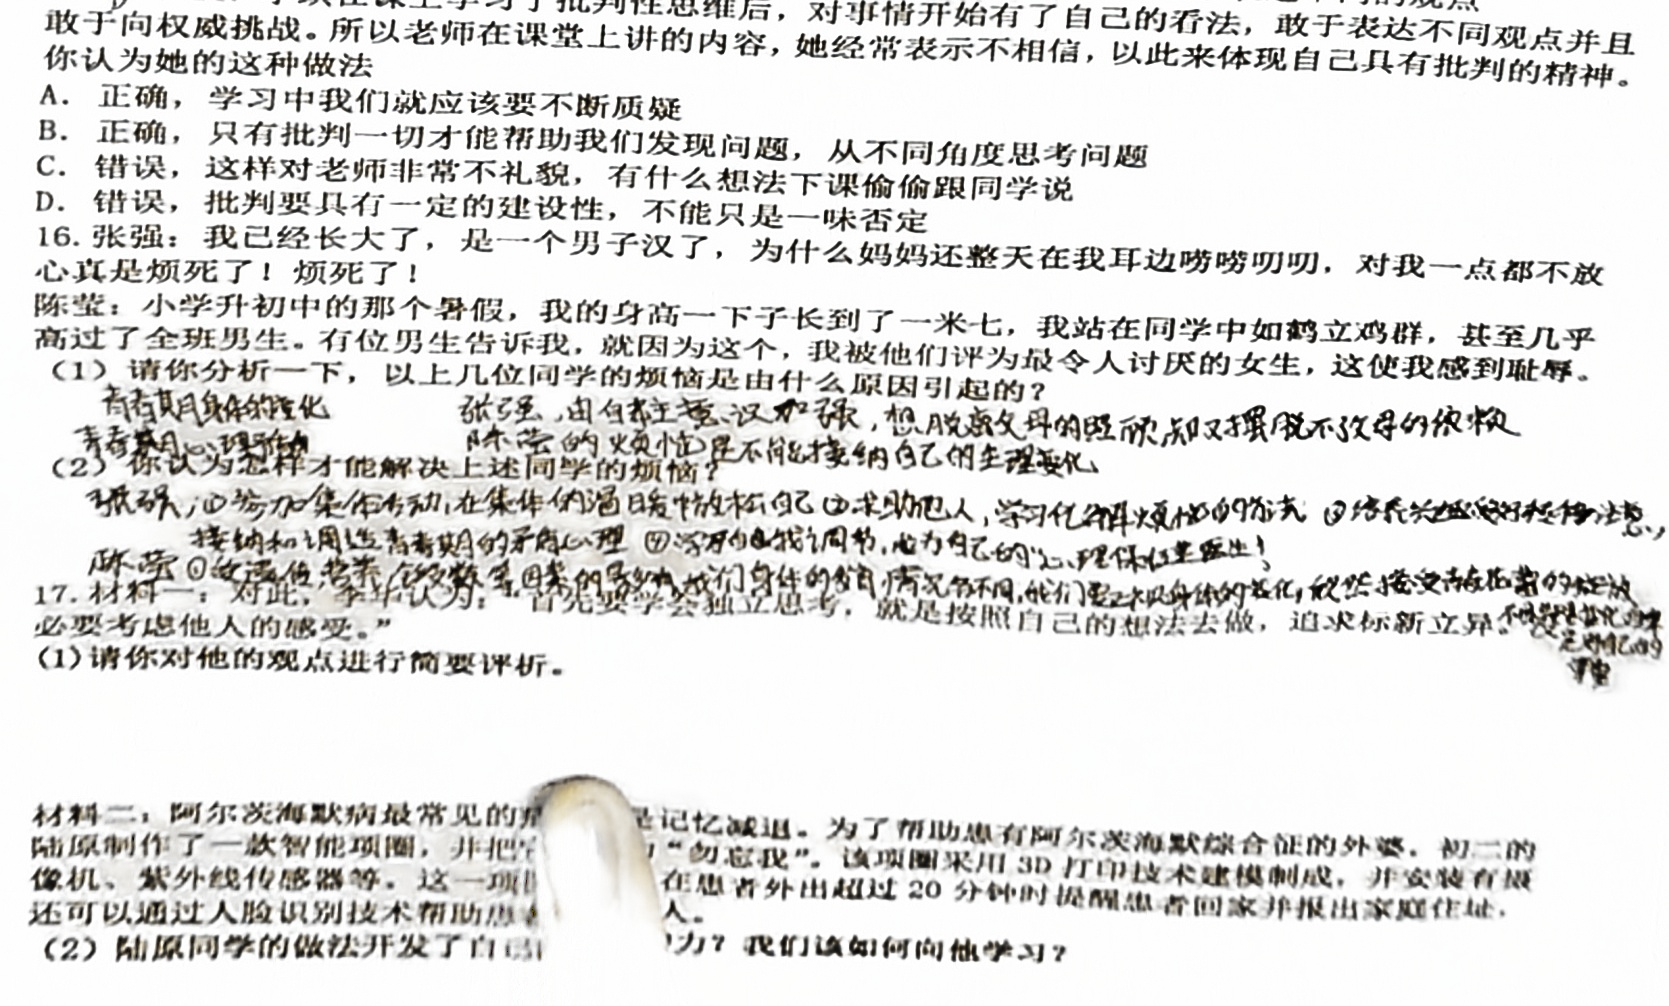 学习了批判性思维后，对事情开始有了自己的看法，敢于表达不同观点并且
敢于向权威挑战。所以老师在课堂上讲的内容，她经常表示不相信，以此来体现自己具有批判的精神。
你认为她的这种做法
A. 正确，学习中我们就应该要不断质疑
B. 正确，只有批判一切才能帮助我们发现问题，从不同角度思考问题
C. 错误，这样对老师非常不礼貌，有什么想法下课偷偷跟同学说
D. 错误，批判要具有一定的建设性，不能只是一味否定
16. 张强：我已经长大了，是一个男子汉了，为什么妈妈还整天在我耳边唠唠叨叨，对我一点都不放
心真是烦死了！烦死了！
陈莹：小学升初中的那个暑假，我的身高一下子长到了一米七，我站在同学中如鹤立鸡群，甚至几乎
高过了全班男生。有位男生告诉我，就因为这个，我被他们评为最令人讨厌的女生，这使我感到耻辱。
（1）请你分析一下，以上几位同学的烦恼是由什么原因引起的？
青春期身体的变化 张强，由自主意识加强，想脱离父母的照顾却又摆脱不了父母的
青春期心理 陈莹的烦恼是不能接纳自己的生理变化
（2）你认为怎样才能解决上述同学的烦恼？
张强：①参加集体活动，在集体的温暖中放松自己 ②求助他人，学习化解烦恼的方法 ③培养
接纳和调适青春期的矛盾心理 ④学习自我调节，成为自己的心理保健医生！
陈莹 ① 我们身体的发育情况各不同，我们要正视身体的变化，欣然接受青春花蕾的绽放
17. 材料一：对此，李华认为：“首先要学会独立思考，就是按照自己的想法去做，追求标新立异。没
必要考虑他人的感受。”
(1)请你对他的观点进行简要评析。
材料二：阿尔茨海默病最常见的 是记忆减退。为了帮助患有阿尔茨海默综合征的外婆，初二的
陆原制作了一款智能项圈，并把 “勿忘我”。该项圈采用 3D 打印技术建模制成，并安装有摄
像机、紫外线传感器等。这一项 在患者外出超过 20 分钟时提醒患者回家并报出家庭住址，
还可以通过人脸识别技术帮助患 人。
（2）陆原同学的做法开发了自己 力？我们该如何向他学习？